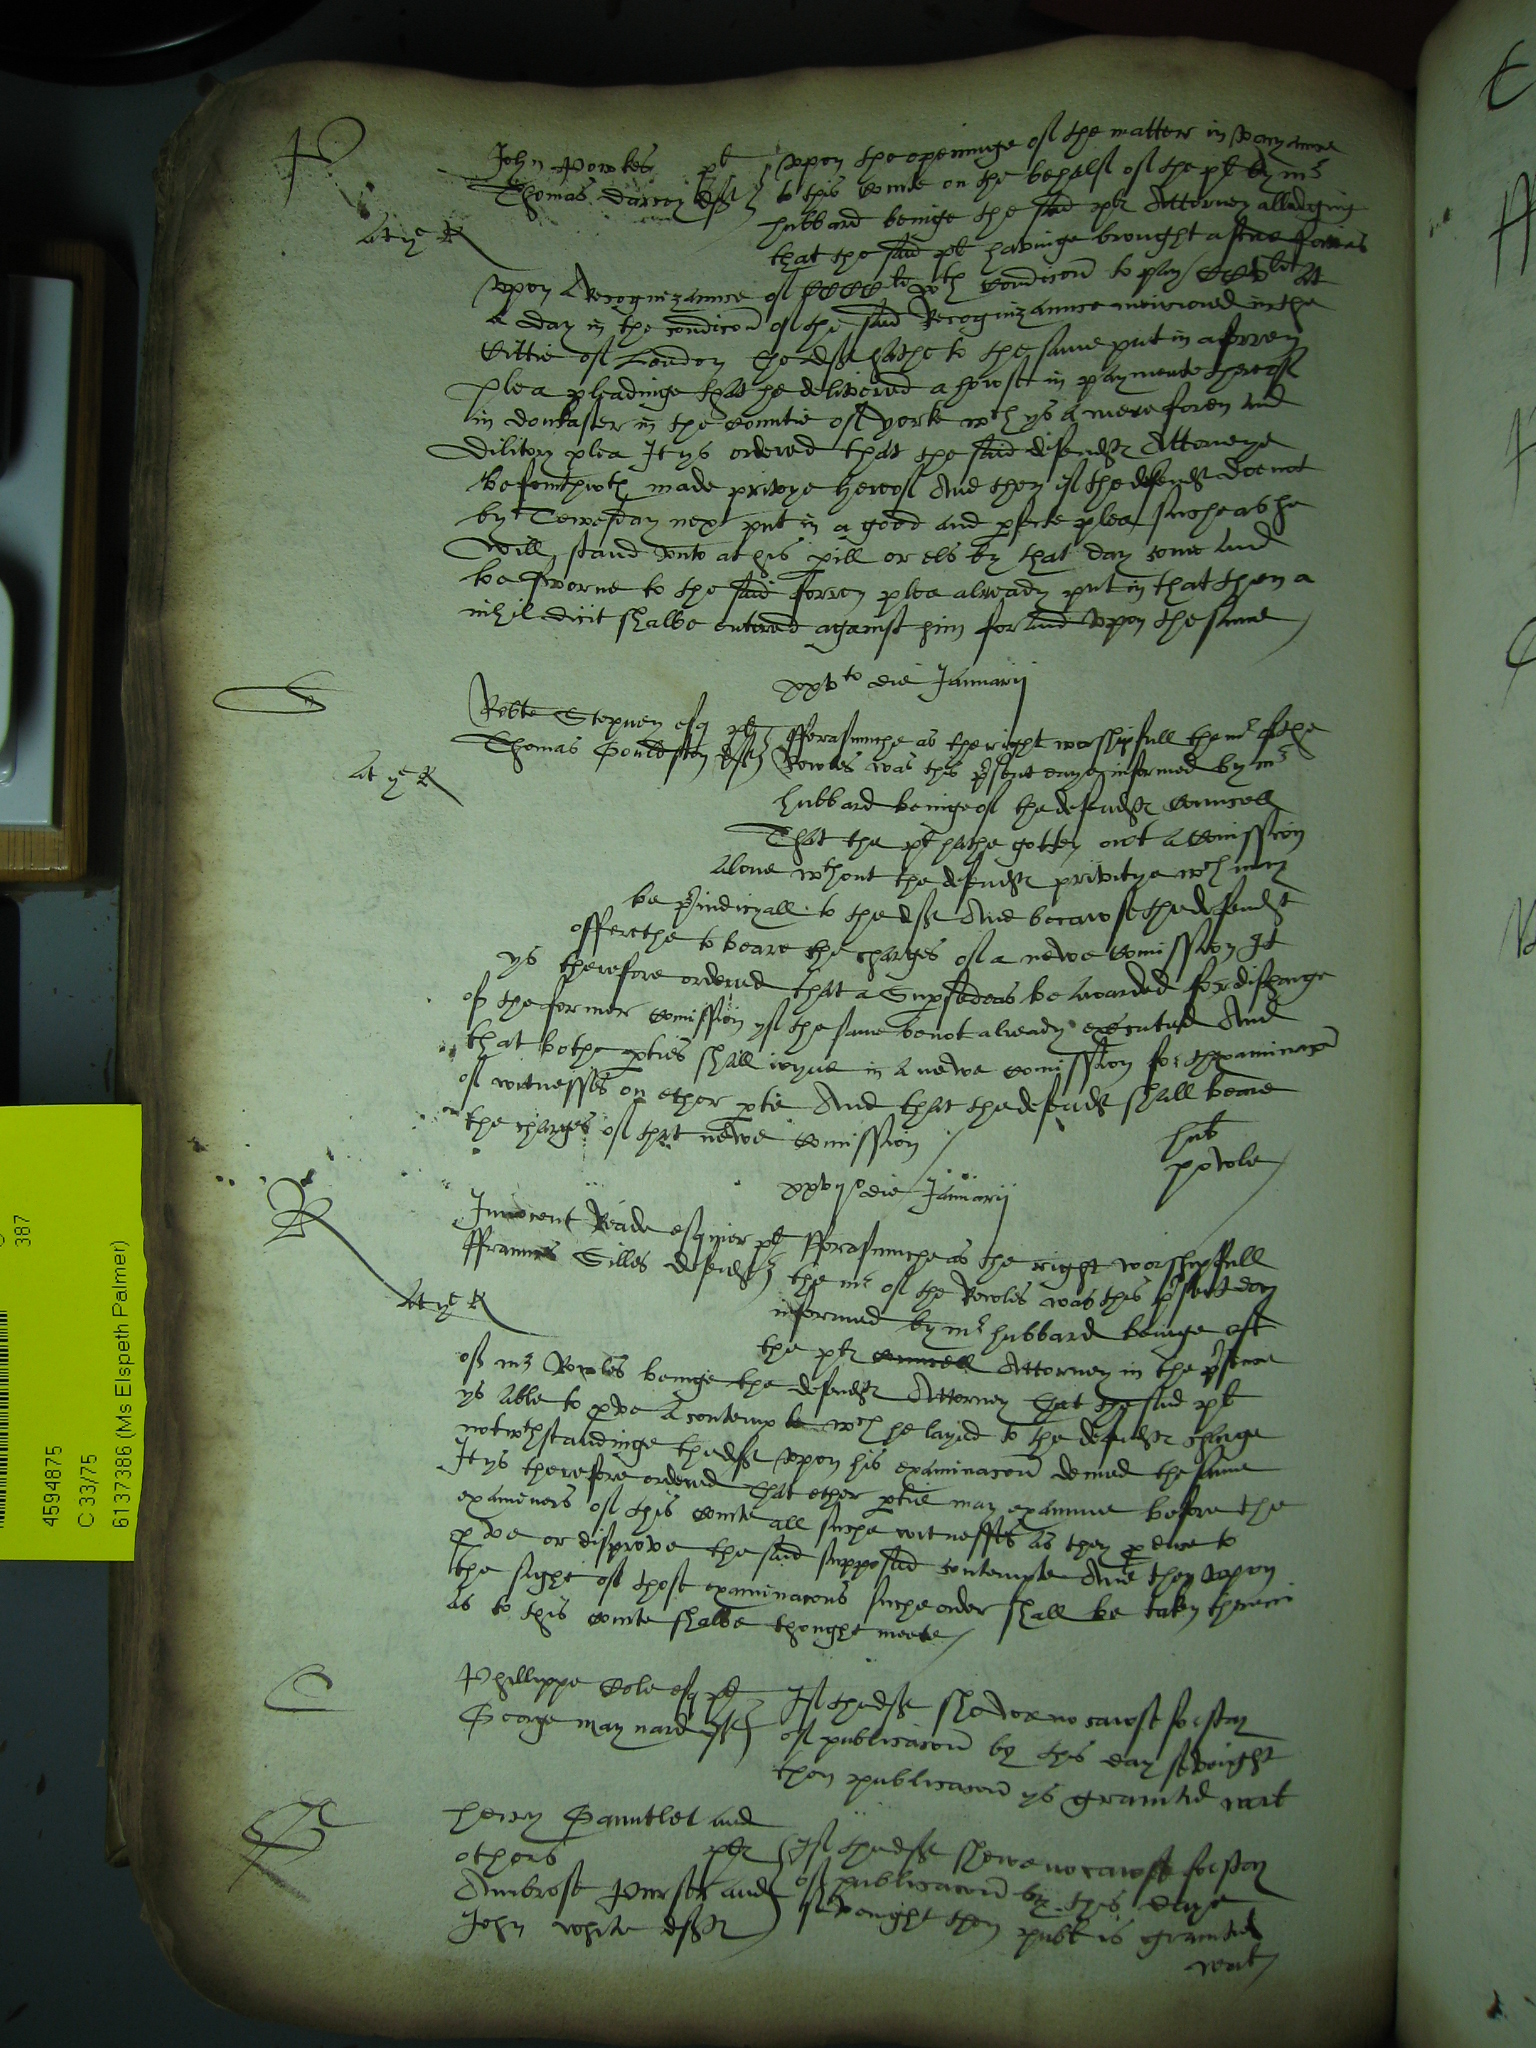 P
John Powles plt
Thomas Darcy deft
Upon the openinge of the matter in varyaunce
to this Courte on the behalf of the plt by mr
hubbard beinge the said plts Attorney alledging
at ye R
that the said plt havinge brought a scire facias
Upon A Recognizaunce of CCCCli wth condicon to pay CCVli At
a day in the condicon of the said Recognizaunce mencioned in the
Cittie of London the deft hathe to the same put in a forren
plea pleadinge that he delivered a howse in paymente thereof
in donkaster in the Countie of Yorke wch ys a mere foren And
Dilitory plea It ys ordered that the said defendts Attorneye
be forthwth made privye hereof And then if the defendt doe not
by Tewesday next put in a good and perfecte plea suche as he
will stand unto at his perill or els by that day come And
be sworne to the said forren plea already put in that then a
nihil dicit shalbe entered against him for and upon the same
xxvto die Januarij
G
Robte Stepney esq plt
Thomas Gouldston deft
fforasmuche as the right worshipfull the mr of the
Rowles was this present daye informed by mr
at ye R
hubbard beinge of the defendts Councell
That the plt hathe gotten owt a Comission
alone wthout the defendts privitye wch may
be preiudicyall to the deft And becawse the defendt
offerethe to beare the charges of a newe Comission It
ys therefore ordered that a Supersedeas be awarded for discharge
of the former Comission yf the same be not already executed And
that bothe parties shall ioyne in a newe Comission for thexaminacon
of witnesses on ether partie And that the defendt shall beare
the charges of that newe Comission
hub
xxvijo die Januarij
R
Innocent Reade esquier plt
ffrauncis Gilles defendt
fforasmuche as the right worshipfull
the mr of the Rowles was this present day
at ye R
informed by mr hubbard beinge of
the plts Councell Attorney in the presence
of mr Rowles beinge the defendts Attorney that the said plt
ys able to prove A contempte wch he layed to the defendts charge
notwthstandinge the deft upon his examinacon denied the same
It ys therefore ordered that ether partie may examine before the
examiners of this Courte all suche witnesses as they produce to
prove or disprove the said supposed contempte And then upon
the sight of those examinacons suche order shall be taken therein
as to this Courte shalbe thought meete
C
Phillippe Cole esq plt
George maynard deft
If the deft shewe no cawse for stay
of publicacon by this day sevenight
then publicacon ys graunted
G
henry Gauntlet and
others plts
Ambrose Purse and
John white defts
If the deft shewe no cawse for stay
of publicacon by this daye
sevenight then publ is graunted
4594875
C 33/75
6137386 (Ms Elspeth Palmer)
387